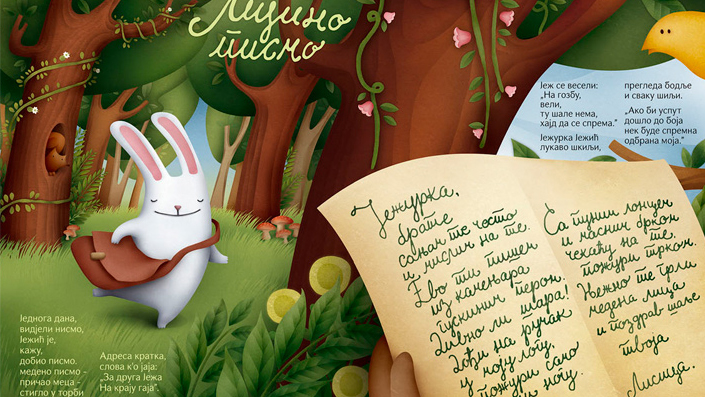 Лијино
писмо
Јеж се весели:
„На гозбу,
вели,
ту шале нема,
хајд да се спрема.“
Јежурка Јежић
лукаво шкиљи,
прегледа бодље
и сваку шиљи.
„Ако би успут
дошло до боја
нек буде спремна
одбрана моја.“
Јежурка,
брате
сањам те често
и мислим на те.
Ево ти пишем
из камењара
гушчијим пером.
Дивно ли шара!
Дођи на ручак
у моју логу,
пожури само
ногу.
Са пуним лонцем
и масним брком
чекаћу на те.
пожури трком.
Њежно те грли
медена лица
и поздрав шаље
твоја
Лисица.
Једнога дана,
видјели нисмо,
Јежић је,
кажу,
добио писмо.
медено писмо -
причао меца -
стигло у торби
Адреса кратка,
слова к'о јаја:
„За друга Јежа
На крају гаја“.